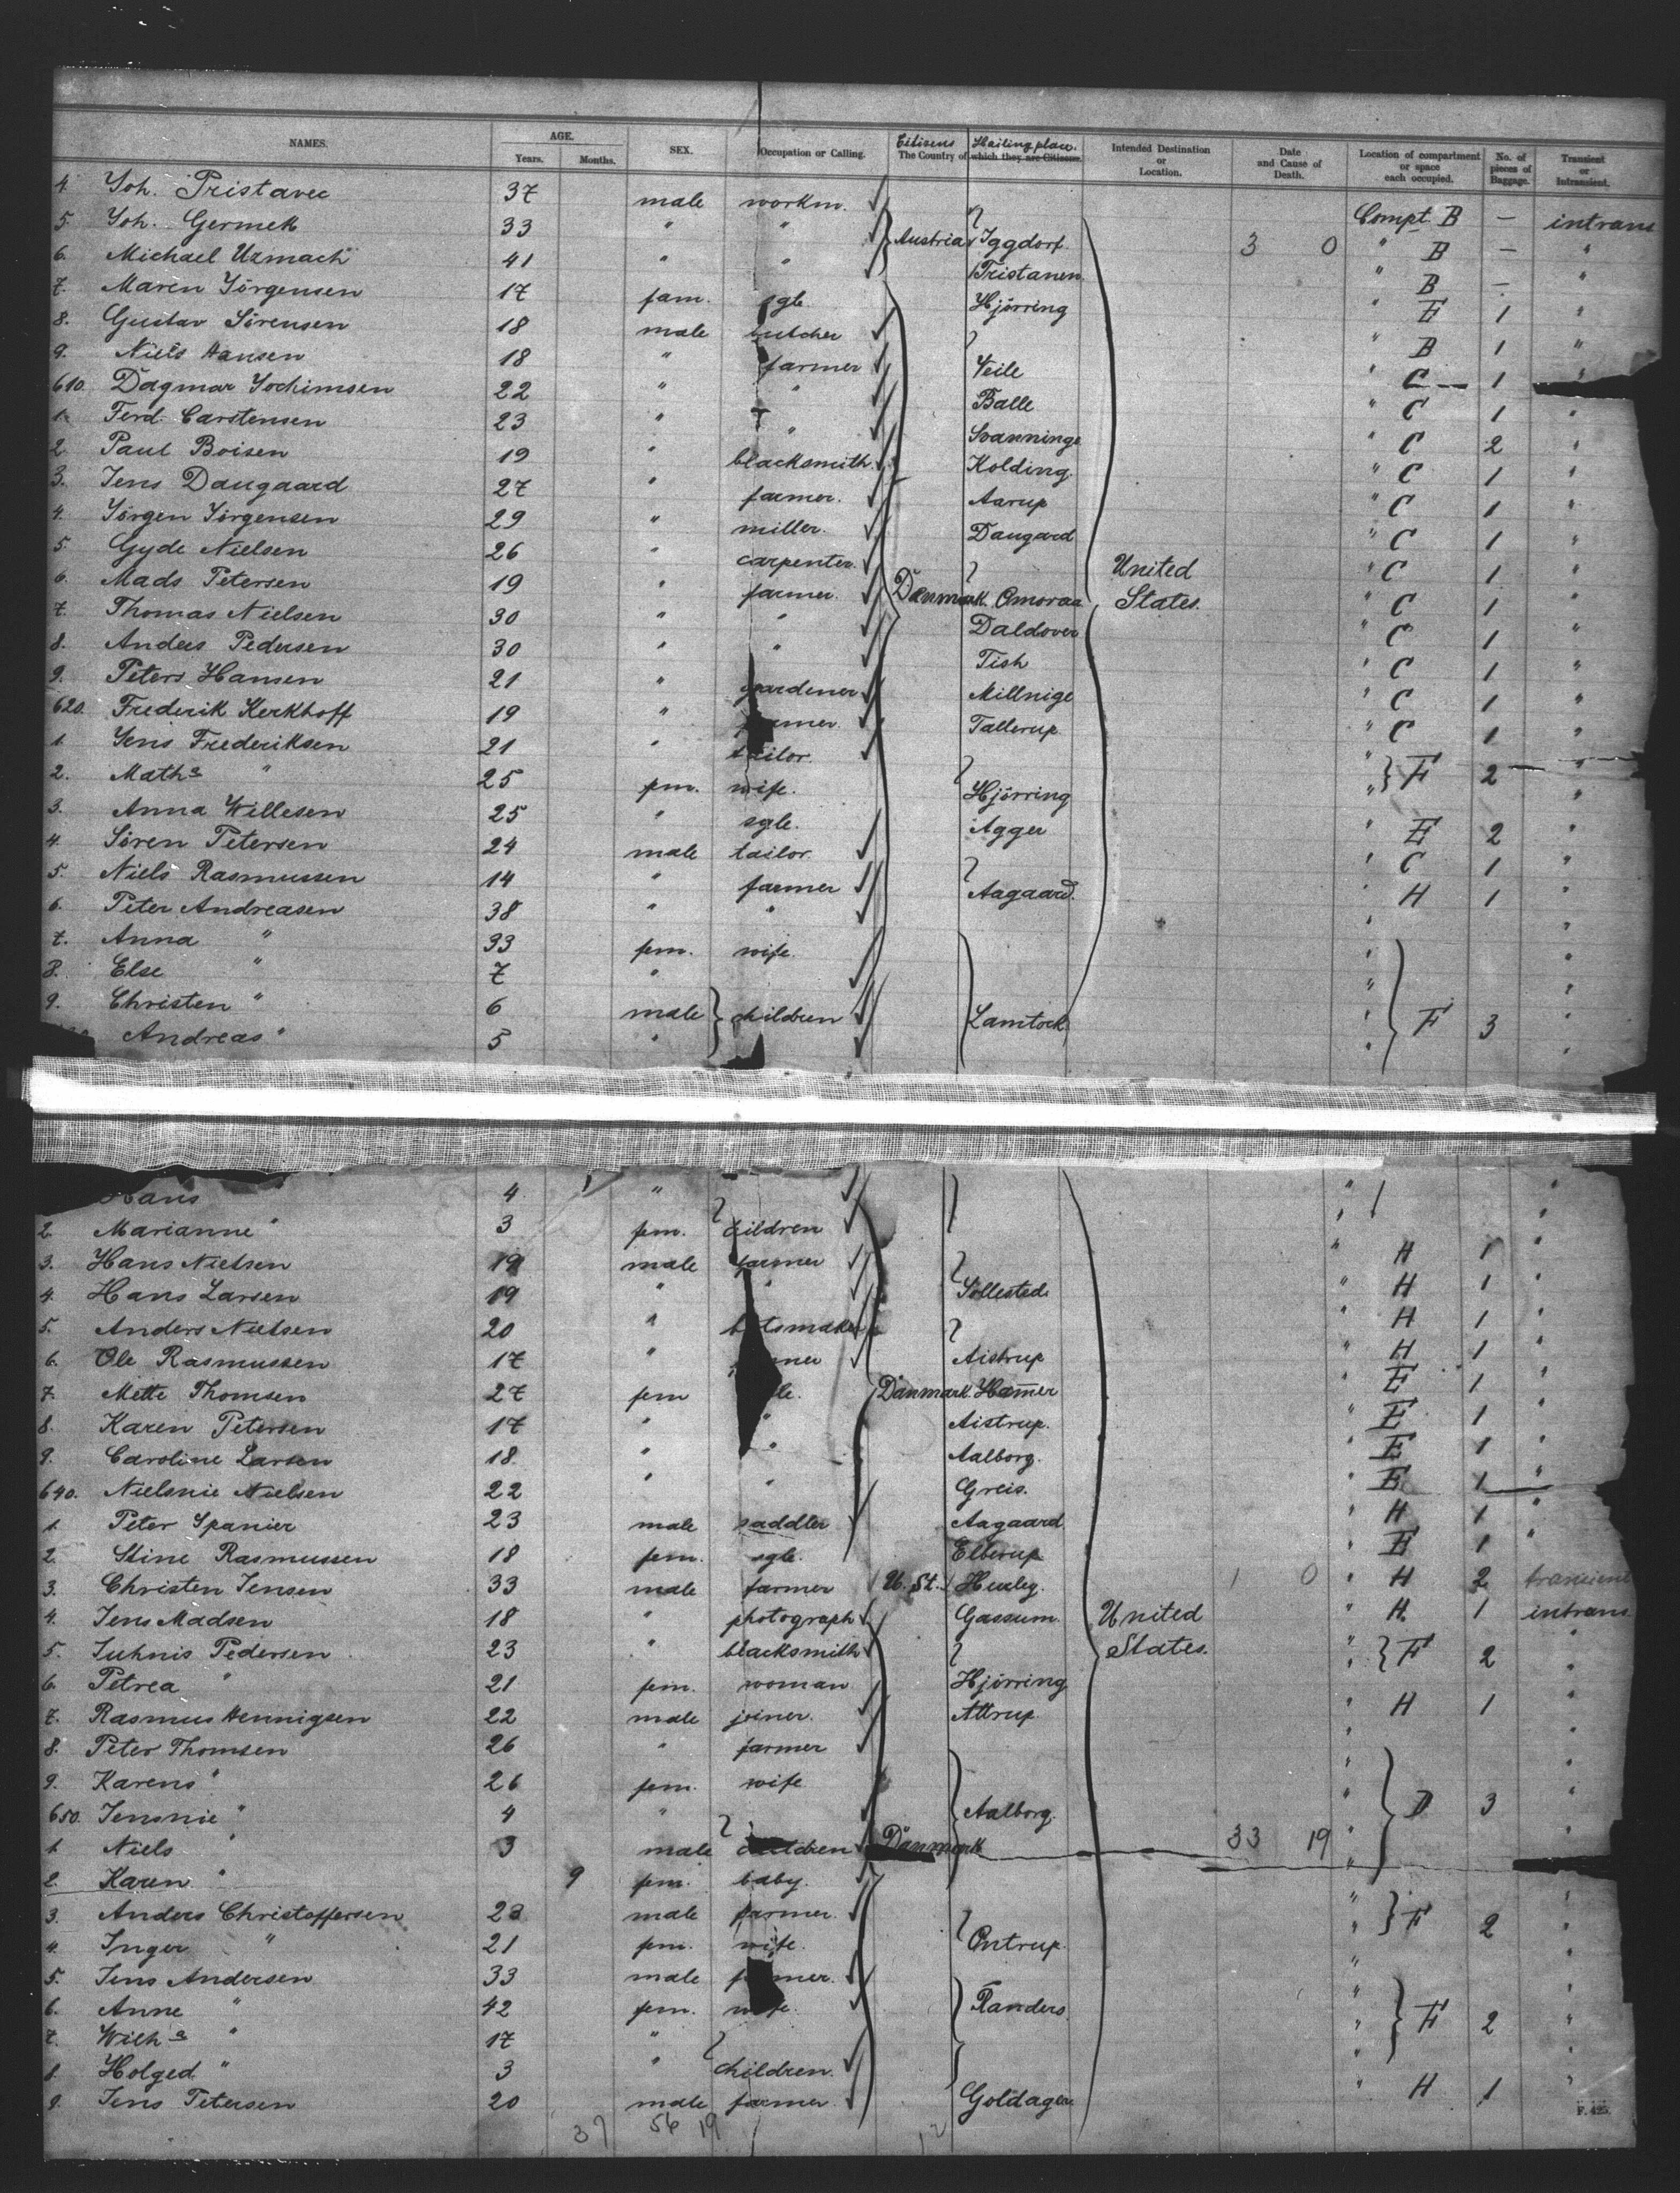 NAMES. AGE. Years. Months. SEX. Occupation or Calling. Citizens The Country of Hailing place. which they are Citizens. Intended Destination or Location. Date and Cause of Death. Location of compartment or space each occupied. No. of pieces of Baggage. Transient or Intransient.
4. Joh. Pristavec 37 male workm. Compt. B — intrans
5. Joh. Germek 33 " " Austria Iggdorf 3 0 " B — "
6. Michael Uzmach 41 " " Tristanen " B — "
7. Maren Jörgensen 17 fam. sgle. Hjörring " E 1 "
8. Gustav Sörensen 18 male butcher " B 1 "
9. Niels Hansen 18 " farmer Veile " C 1 "
610. Dagmar Jochimsen 22 " " Balle " C 1 "
1. Ferd. Carstensen 23 " " Svanninge " C 2 "
2. Paul Boisen 19 " blacksmith Kolding " C 1 "
3. Jens Daugaard 27 " farmer. Aarup " C 1 "
4. Jörgen Jörgensen 29 " miller. Daugard " C 1 "
5. Gyde Nielsen 26 " carpenter. United " C 1 "
6. Mads Petersen 19 " farmer. Danmark. Omoraa States. " C 1 "
7. Thomas Nielsen 30 " " Daldover " C 1 "
8. Anders Pedersen 30 " " Tish " C 1 "
9. Peters Hansen 21 " gardener Millnige " C 1 "
620. Frederik Kerkhoff 19 " farmer Tallerup " C 1 "
1. Jens Frederiksen 21 " tailor. " F 2 "
2. Maths " 25 fem. wife. Hjörring " "
3. Anna Willesen 25 " sgle. Agger " E 2 "
4. Sören Petersen 24 male tailor. " C 1 "
5. Niels Rasmussen 14 " farmer Aagaard. " H 1 "
6. Peter Andreasen 38 " " " "
7. Anna " 33 fem. wife. " "
8. Else " 7 " " "
9. Christen " 6 male children Lamtock " F 3 "
Andreas " 5 " " "
Hans 4 " " "
2. Marianne " 3 fem. children " "
3. Hans Nielsen 19 male farmer " H 1 "
4. Hans Larsen 19 " " Söllested. " H 1 "
5. Anders Nielsen 20 " " H 1 "
6. Ole Rasmussen 17 " Aistrup " H 1 "
7. Mette Thomsen 27 fem Danmark. Hammer " E 1 "
8. Karen Petersen 17 " " Aistrup. " E 1 "
9. Caroline Larsen 18 " " Aalborg. " E 1 "
640. Nielsnie Nielsen 22 " " Greis. " E 1 "
1. Peter Spanier 23 male saddler Aagaard " H 1 "
2. Stine Rasmussen 18 fem. sgle. Elberup " E 1 "
3. Christen Jensen 33 male farmer U. St. Huxley. 1 0 " H 2 transient
4. Jens Madsen 18 " photograph Gassum. United " H. 1 intrans
5. Juhnis Pedersen 23 " blacksmith States. " F 2 "
6. Petrea " 21 fem. woman Hjörring " "
7. Rasmus Hennigsen 22 male joiner. Attrup " H 1 "
8. Peter Thomsen 26 " farmer " "
9. Karens " 26 fem. wife " "
650. Jensnie " 4 " Aalborg. " D 3 "
1. Niels " 3 male children Danmark 33 19 " "
2. Karen " 9 fem. baby. "
3. Anders Christoffersen 28 male farmer. " F 2 "
4. Inger " 21 fem. wife. Ontrup. " "
5. Jens Andersen 33 male farmer. " "
6. Anne " 42 fem. wife. Randers. " F 2 "
7. Wilhe " 17 " " "
8. Holged " 3 " children. " "
9. Jens Petersen 20 male farmer Goldager " H 1 "
F. 425.
37 56 19 12